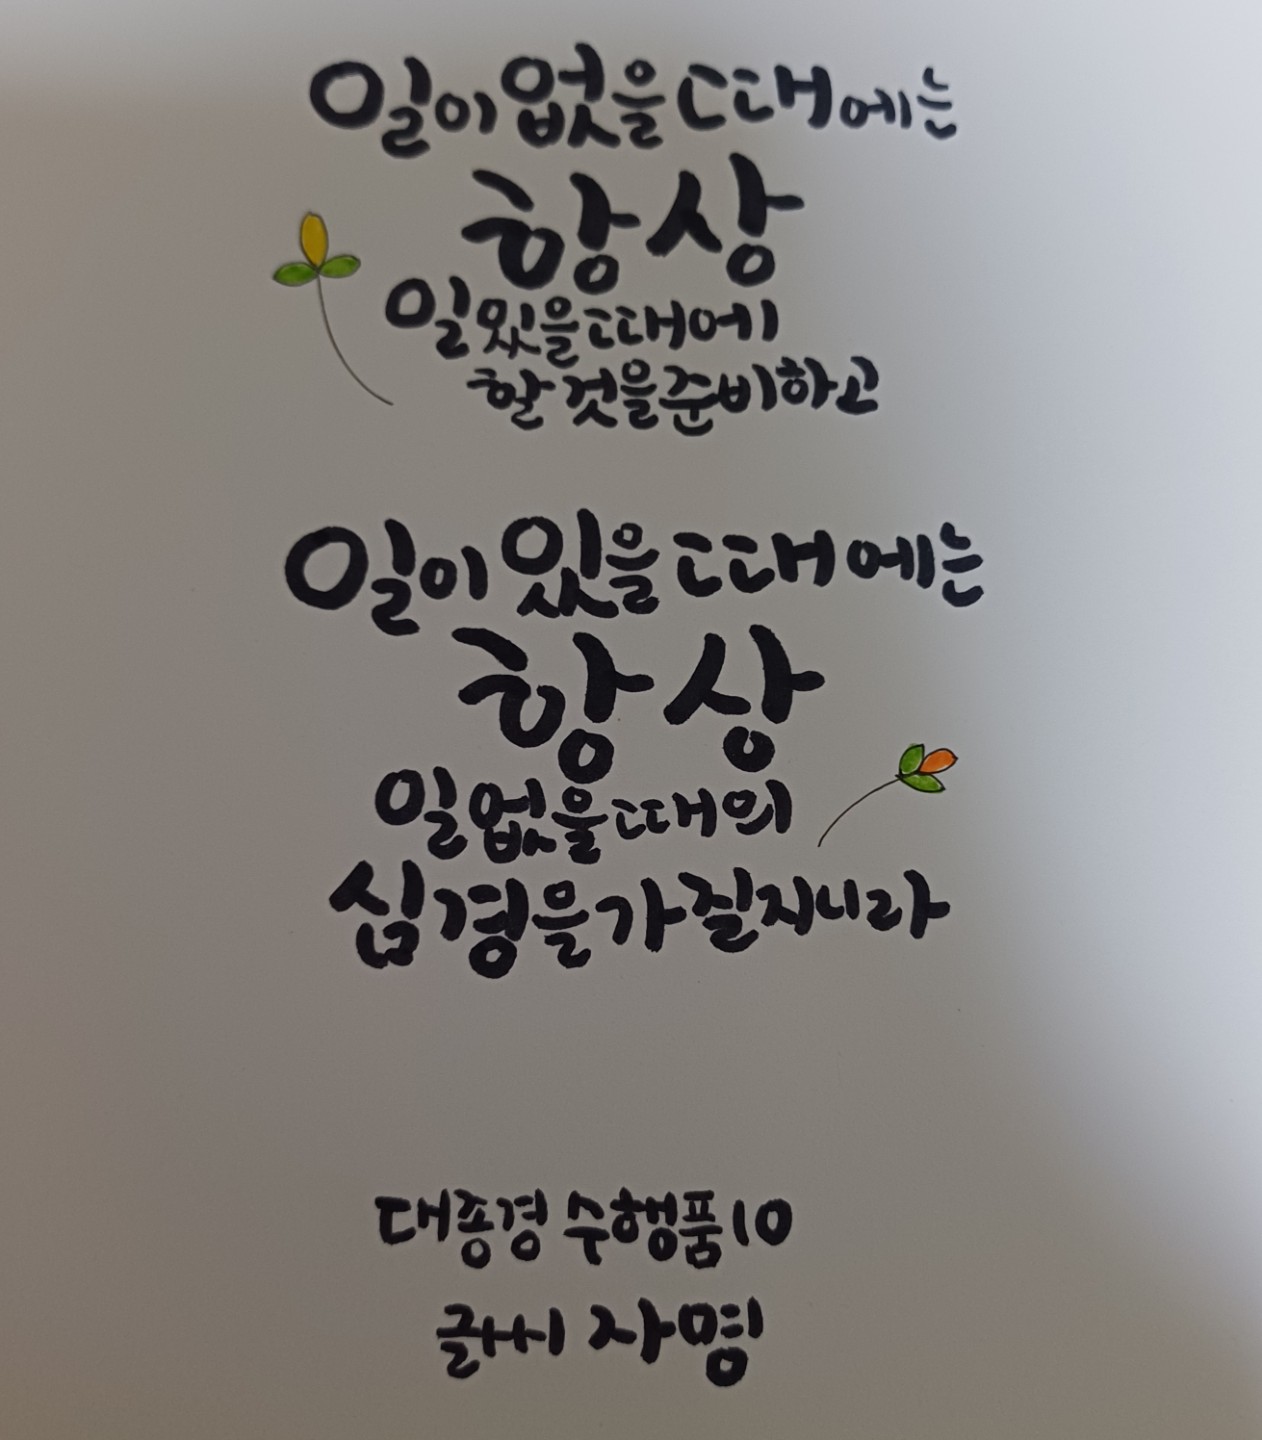 일이 없을 때에는
항상
일 있을 때에
할 것을 준비하고
일이 있을 때에는
항상
일 없을 때의
심경을 가질지니라
대종경 수행품 10
글씨 자명